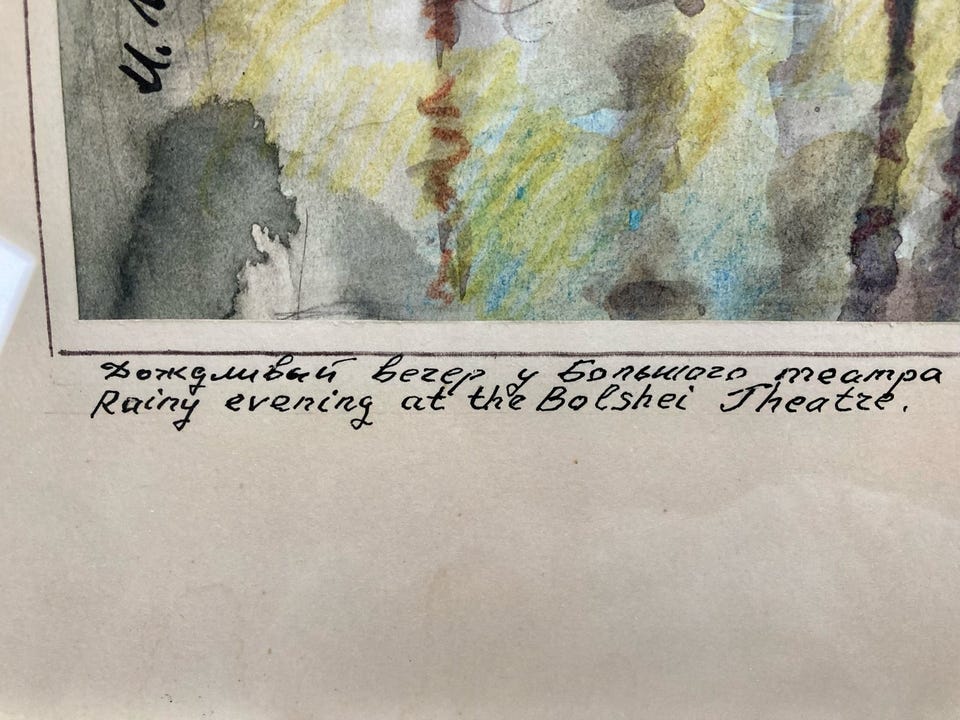 Дождливый вечер у Большого театра
Rainy evening at the Bolshei Theatre.